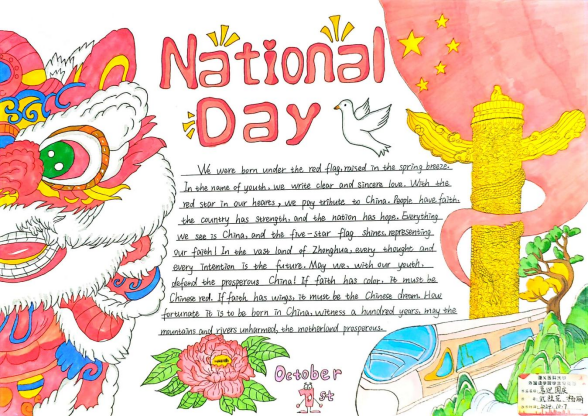 National
Day
We were born under the red flag, raised in the spring breeze.
In the name of youth, we write clear and sincere love. With the
red star in our heares, we pay tribute to China. People have faith,
the country has strength, and the nation has hope. Everything
we see is China, and the five-star flag shines, representing
our faith! In the vast land of Zhonghua, every thought and
every intention is the future. May we, with our youth,
defend the prosperous China! If faith has color, it must be
Chinese red. If faith has wings, it must be the Chinese dream. How
fortunate it is to be born in China, witness a hundred years, may the
mountains and rivers unharmed, the motherland prosperous.
October
1st